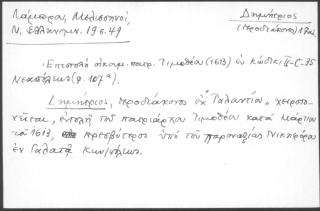 Λάμπρου, Μελισσηνοί,
Ν. Ἑλληνομν. 19 σ. 49
Δημήτριος
(ἱεροδιάκονος)
Ἐπιστολὴ οἰκουμ. πατρ. Τιμοθέου (1613) ἐν Κώδικι II-C-35
Νεαπόλεως (φ. 107α).
Δημήτριος, ἱεροδιάκονος ἐκ "Γαλαντίων" χειροτο-
νεῖται, ἐντολῇ τοῦ πατριάρχου Τιμοθέου κατὰ Μάρτιον
τοῦ 1613, πρεσβύτερος ὑπὸ τοῦ Παροναξίας Νικηφόρου
ἐν Γαλατᾷ Κων/πόλεως.